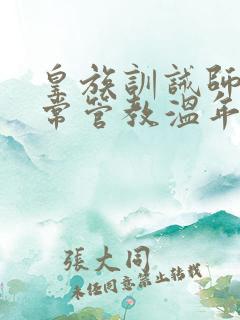 皇族訓誡師
常管教溫年
張大同
未任同意禁止转载